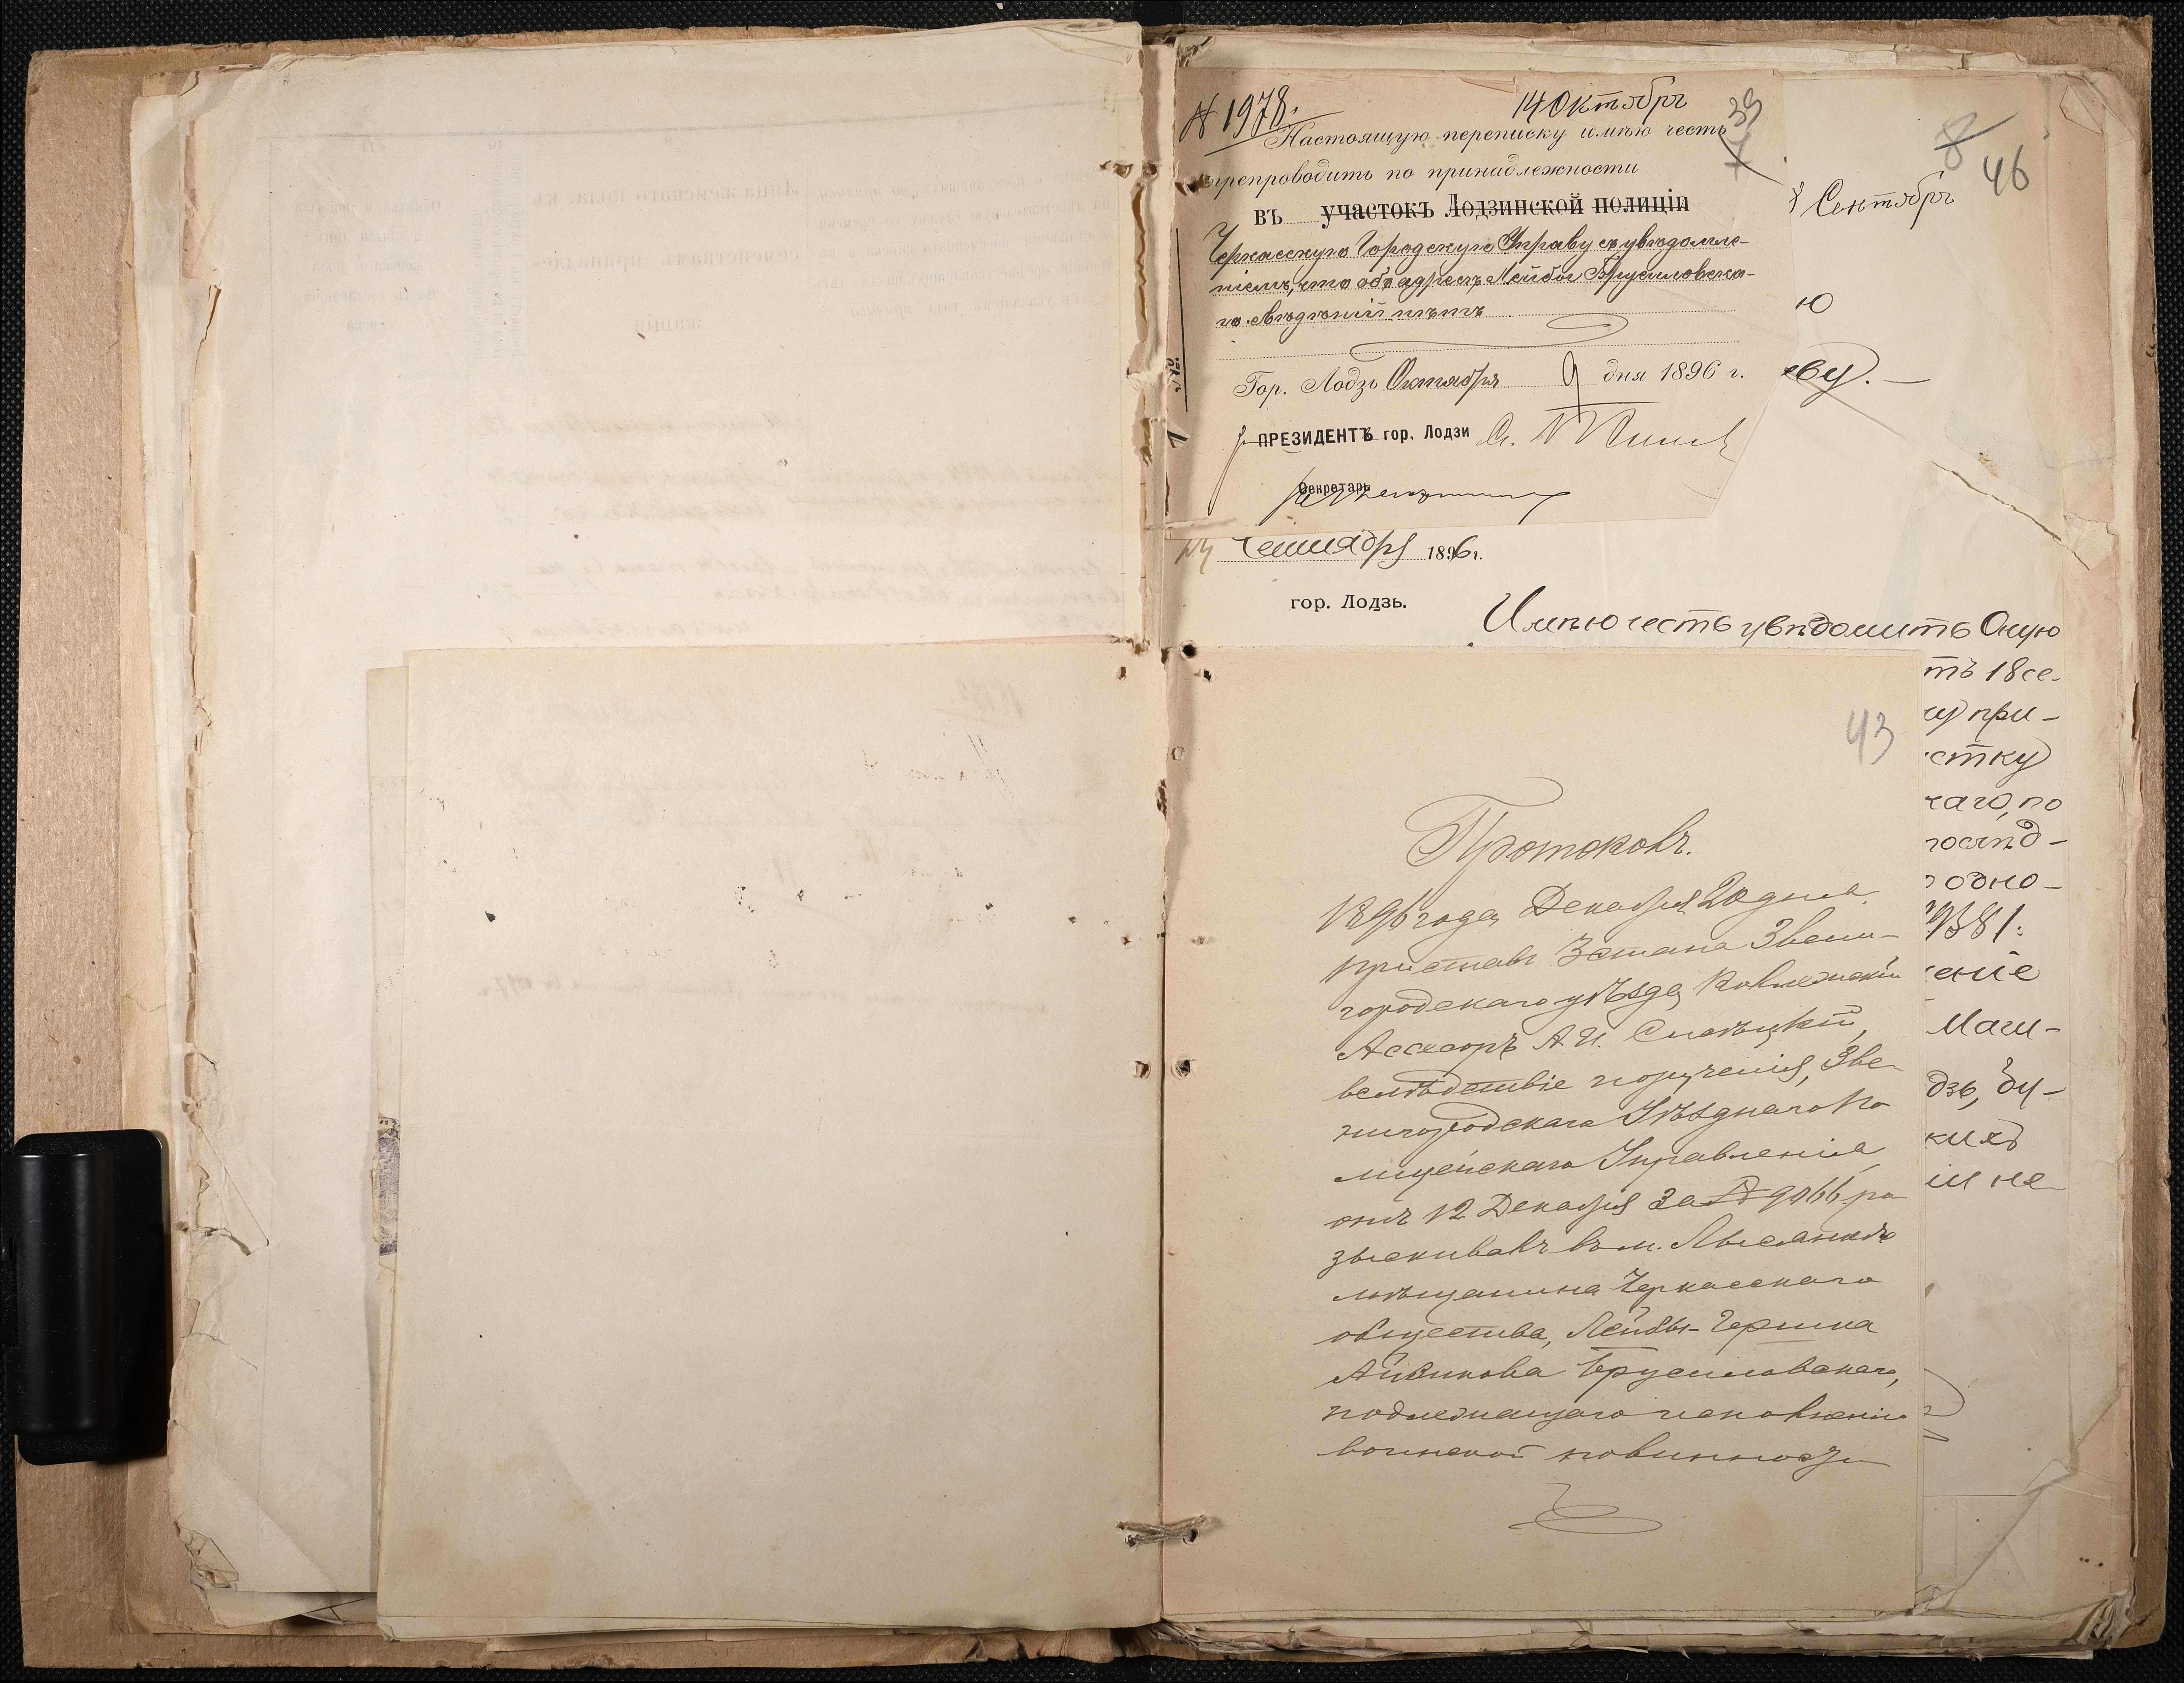 № 1978.
14 Октябрь
39
7
Настоящую переписку имѣю честь
препроводить по принадлежности
въ участокъ Лодзинской полиціи
Черкасскую Городскую Управу съ увѣдомле-
ніемъ, что объ адресѣ Лейбы Брусиловска-
го свѣдѣній нѣтъ
Гор. Лодзь Октября 9 дня 1896 г.
ПРЕЗИДЕНТЪ гор. Лодзи
Секретарь
8
46
Сентябрь
ю
ву.
Сентября 1896 г.
гор. Лодзь.
Имѣю честь увѣдомить Оную
тъ 18 се-
при-
стку
каго, по
послѣд-
одно-
9381.
еніе
Маги-
дзь, бу-
кихъ
ии не
43
Протоколъ.
1896 года Декабря 20 дня.
Приставъ 3 стана Звени-
городскаго уѣзда Коллежскій
Ассесоръ А. И.
вслѣдствіе порученія, Зве-
нигородскаго Уѣзднаго По
лицейскаго Управленія
отъ 12 Декабря за № 9066 ра
зыскивалъ въ м. Лысянкѣ
мѣщанина Черкасскаго
общества, Лейбы-Гершка
Айзикова Брусиловскаго,
подлежащаго исполненію
воинской повинности